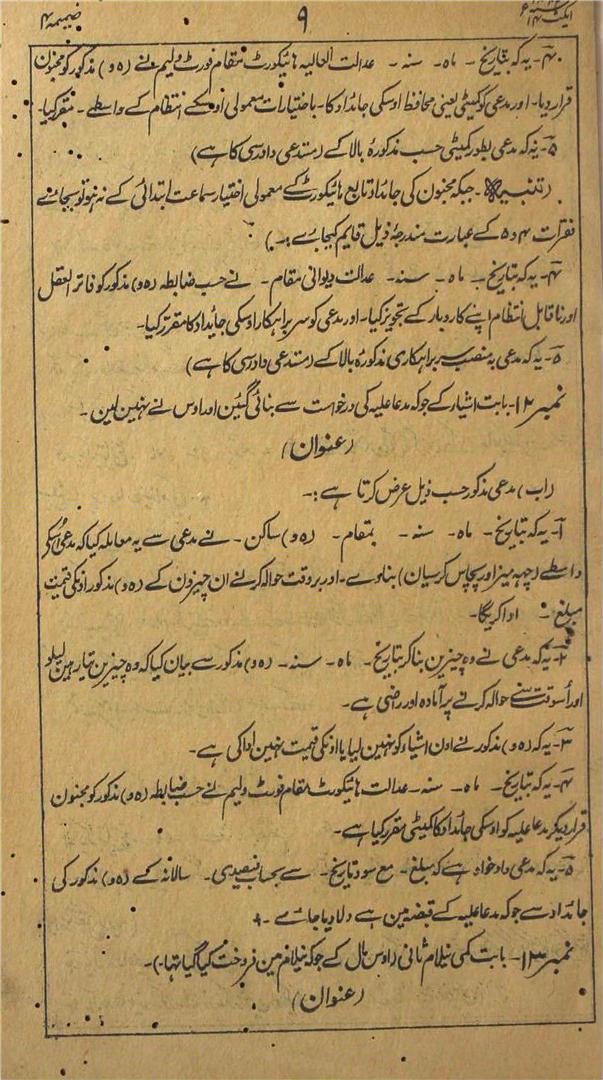 ضمیمہ ۴ ۹ ایکٹ ۱۴ سنہ
۴۔ یہ کہ بتاریخ ۔ ماہ ۔ سنہ ۔ عدالت العالیہ ہائیکورٹ مقام فورٹ ولیم نے (ہ و) مذکور کو مجنون
قرار دیا۔ اور مدعی کو کمیٹی یعنی محافظ اوسکی جائداد کا۔ باختیارات معمولی اوسکے انتظام کے واسطے۔ مقرر کیا۔
۵۔ یہ کہ مدعی بطور کمیٹی حسب مذکورہ بالا کے (مستدعی دادرسی کا ہے)
(تنبیہ)۔ جبکہ مجنون کی جائداد تابع ہائیکورٹ کے معمولی اختیار سماعت ابتدائی کے نہو تو بجاے
فقرات ۴ و ۵ کے عبارت مندرجہ ذیل قایم کیجاے :۔)
۴۔ یہ کہ بتاریخ ۔ ماہ ۔ سنہ ۔ عدالت دیوانی مقام ۔ نے حسب ضابطہ (ہ و) مذکور کو فاتر العقل
اور ناقابل انتظام اپنے کاروبار کے تجویز کیا۔ اور مدعی کو سربراہکار اوسکی جایداد کا مقرر کیا۔
۵۔ یہ کہ مدعی بہ منصب سربراہکاری مذکورہ بالا کے (مستدعی دادرسی کا ہے)
نمبر ۱۲۔ بابت اشیار کے جو کہ مدعا علیہ کی درخواست سے بنائی گئین اور اوس نے نہین لین ۔
(عنوان)
(اب) مدعی مذکور حسب ذیل عرض کرتا ہے :۔
۱۔ یہ کہ بتاریخ ۔ ماہ ۔ سنہ ۔ بمقام ۔ (ہ و) ساکن ۔ نے مدعی سے یہ معاملہ کیا کہ مدعی اُسکے
واسطے (چھہ میز اور پچاس کرسیان) بناوے۔ اور بروقت حوالہ کرنے ان چیزون کے (ہ و) مذکور اونکی قیمت
مبلغ ۔ ادا کریگا۔
۲۔ یہ کہ مدعی نے وہ چیزین بنا کر بتاریخ ۔ ماہ ۔ سنہ ۔ (ہ و) مذکور سے بیان کیا کہ وہ چیزین تیار ہین لیلو
اور اُسوقت سے حوالہ کرنے پر آمادہ اور راضی ہے۔
۳۔ یہ کہ (ہ و) مذکور نے اون اشیاء کو نہین لیا یا اونکی قیمت نہین ادا کی ہے۔
۴۔ یہ کہ بتاریخ ۔ ماہ ۔ سنہ ۔ عدالت ہائیکورٹ مقام فورٹ ولیم نے حسب ضابطہ (ہ و) مذکور کو مجنون
قرار دیکر مدعا علیہ کو اوسکی جائداد کا کمیٹی مقرر کیا ہے۔
۵۔ یہ کہ مدعی دادخواہ ہے کہ مبلغ ۔ مع سود تاریخ ۔ سے بحساب فیصدی ۔ سالانہ کے (ہ و) مذکور کی
جائداد سے جو کہ مدعا علیہ کے قبضہ مین ہے دلا دیا جاے ۔
نمبر ۱۳۔ بابت کمی نیلام ثانی (اوس مال کے جو کہ نیلام مین فروخت کیا گیا تہا)۔
(عنوان)